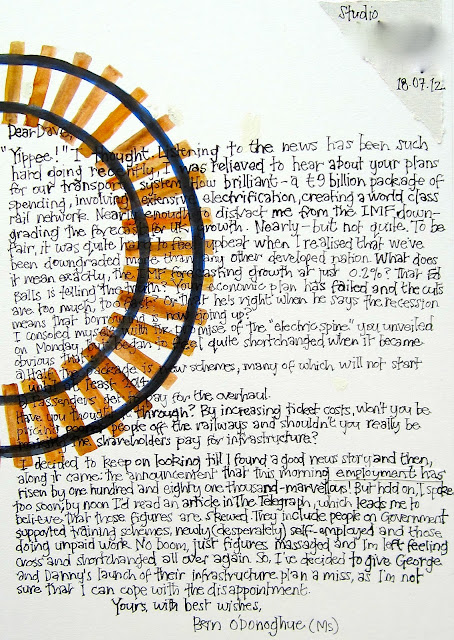 Studio
18.07.12
Dear Dave,
"Yippee!" I thought. Listening to the news has been such
hard doing recently, I was relieved to hear about your plans
for our transport system. How brilliant - a £9 billion package of
spending, involving extensive electrification, creating a world class
rail network. Nearly enough to distract me from the IMF down-
grading the forecast for UK growth. Nearly - but not quite. To be
fair, it was quite hard to feel upbeat when I realised that we've
been downgraded more than any other developed nation. What does
it mean exactly, the IMF forecasting growth at just 0.2%? That Ed
Balls is telling the truth? Your economic plan has failed and the cuts
are too much, too fast? Or that he's right when he says the recession
means that borrowing is now going up?
I consoled myself with the promise of the "electric spine" you unveiled
on Monday, but began to feel quite shortchanged when it became
obvious that
a) Half the package is new schemes, many of which will not start
until at least 2014
b) Passengers get to pay for the overhaul.
Have you thought this through? By increasing ticket costs, won't you be
pricing people off the railways and shouldn't you really be
making the shareholders pay for infrastructure?
I decided to keep on looking till I found a good news story and then,
along it came: the announcement that this morning employment has
risen by one hundred and eighty one thousand - marvellous! But hold on, I spoke
too soon; by noon I'd read an article in The Telegraph, which leads me to
believe that those figures are skewed. They include people on Government
supported training schemes, newly (desperately) self-employed and those
doing unpaid work. No boom, just figures massaged and I'm left feeling
cross and shortchanged all over again. So, I've decided to give George
and Danny's launch of their infrastructure plan a miss, as I'm not
sure that I can cope with the disappointment.
Yours, with best wishes,
Bern O'Donoghue (Ms)